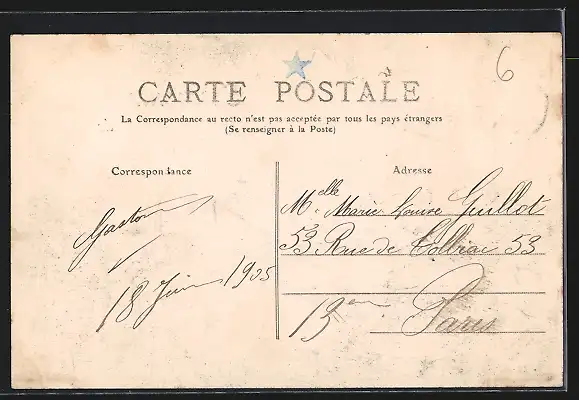 6
CARTE POSTALE
La Correspondance au recto n'est pas acceptée par tous les pays étrangers
(Se renseigner à la Poste)
Correspondance
Adresse
Gaston
18 Juin 1905
Melle Marie Louise Guillot
53 Rue de Tolbiac 53
13em Paris